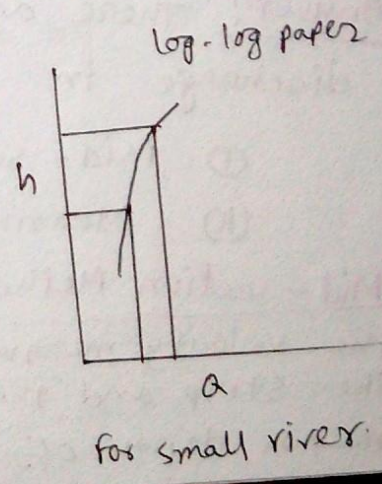 log-log paper
h
Q
for small river.